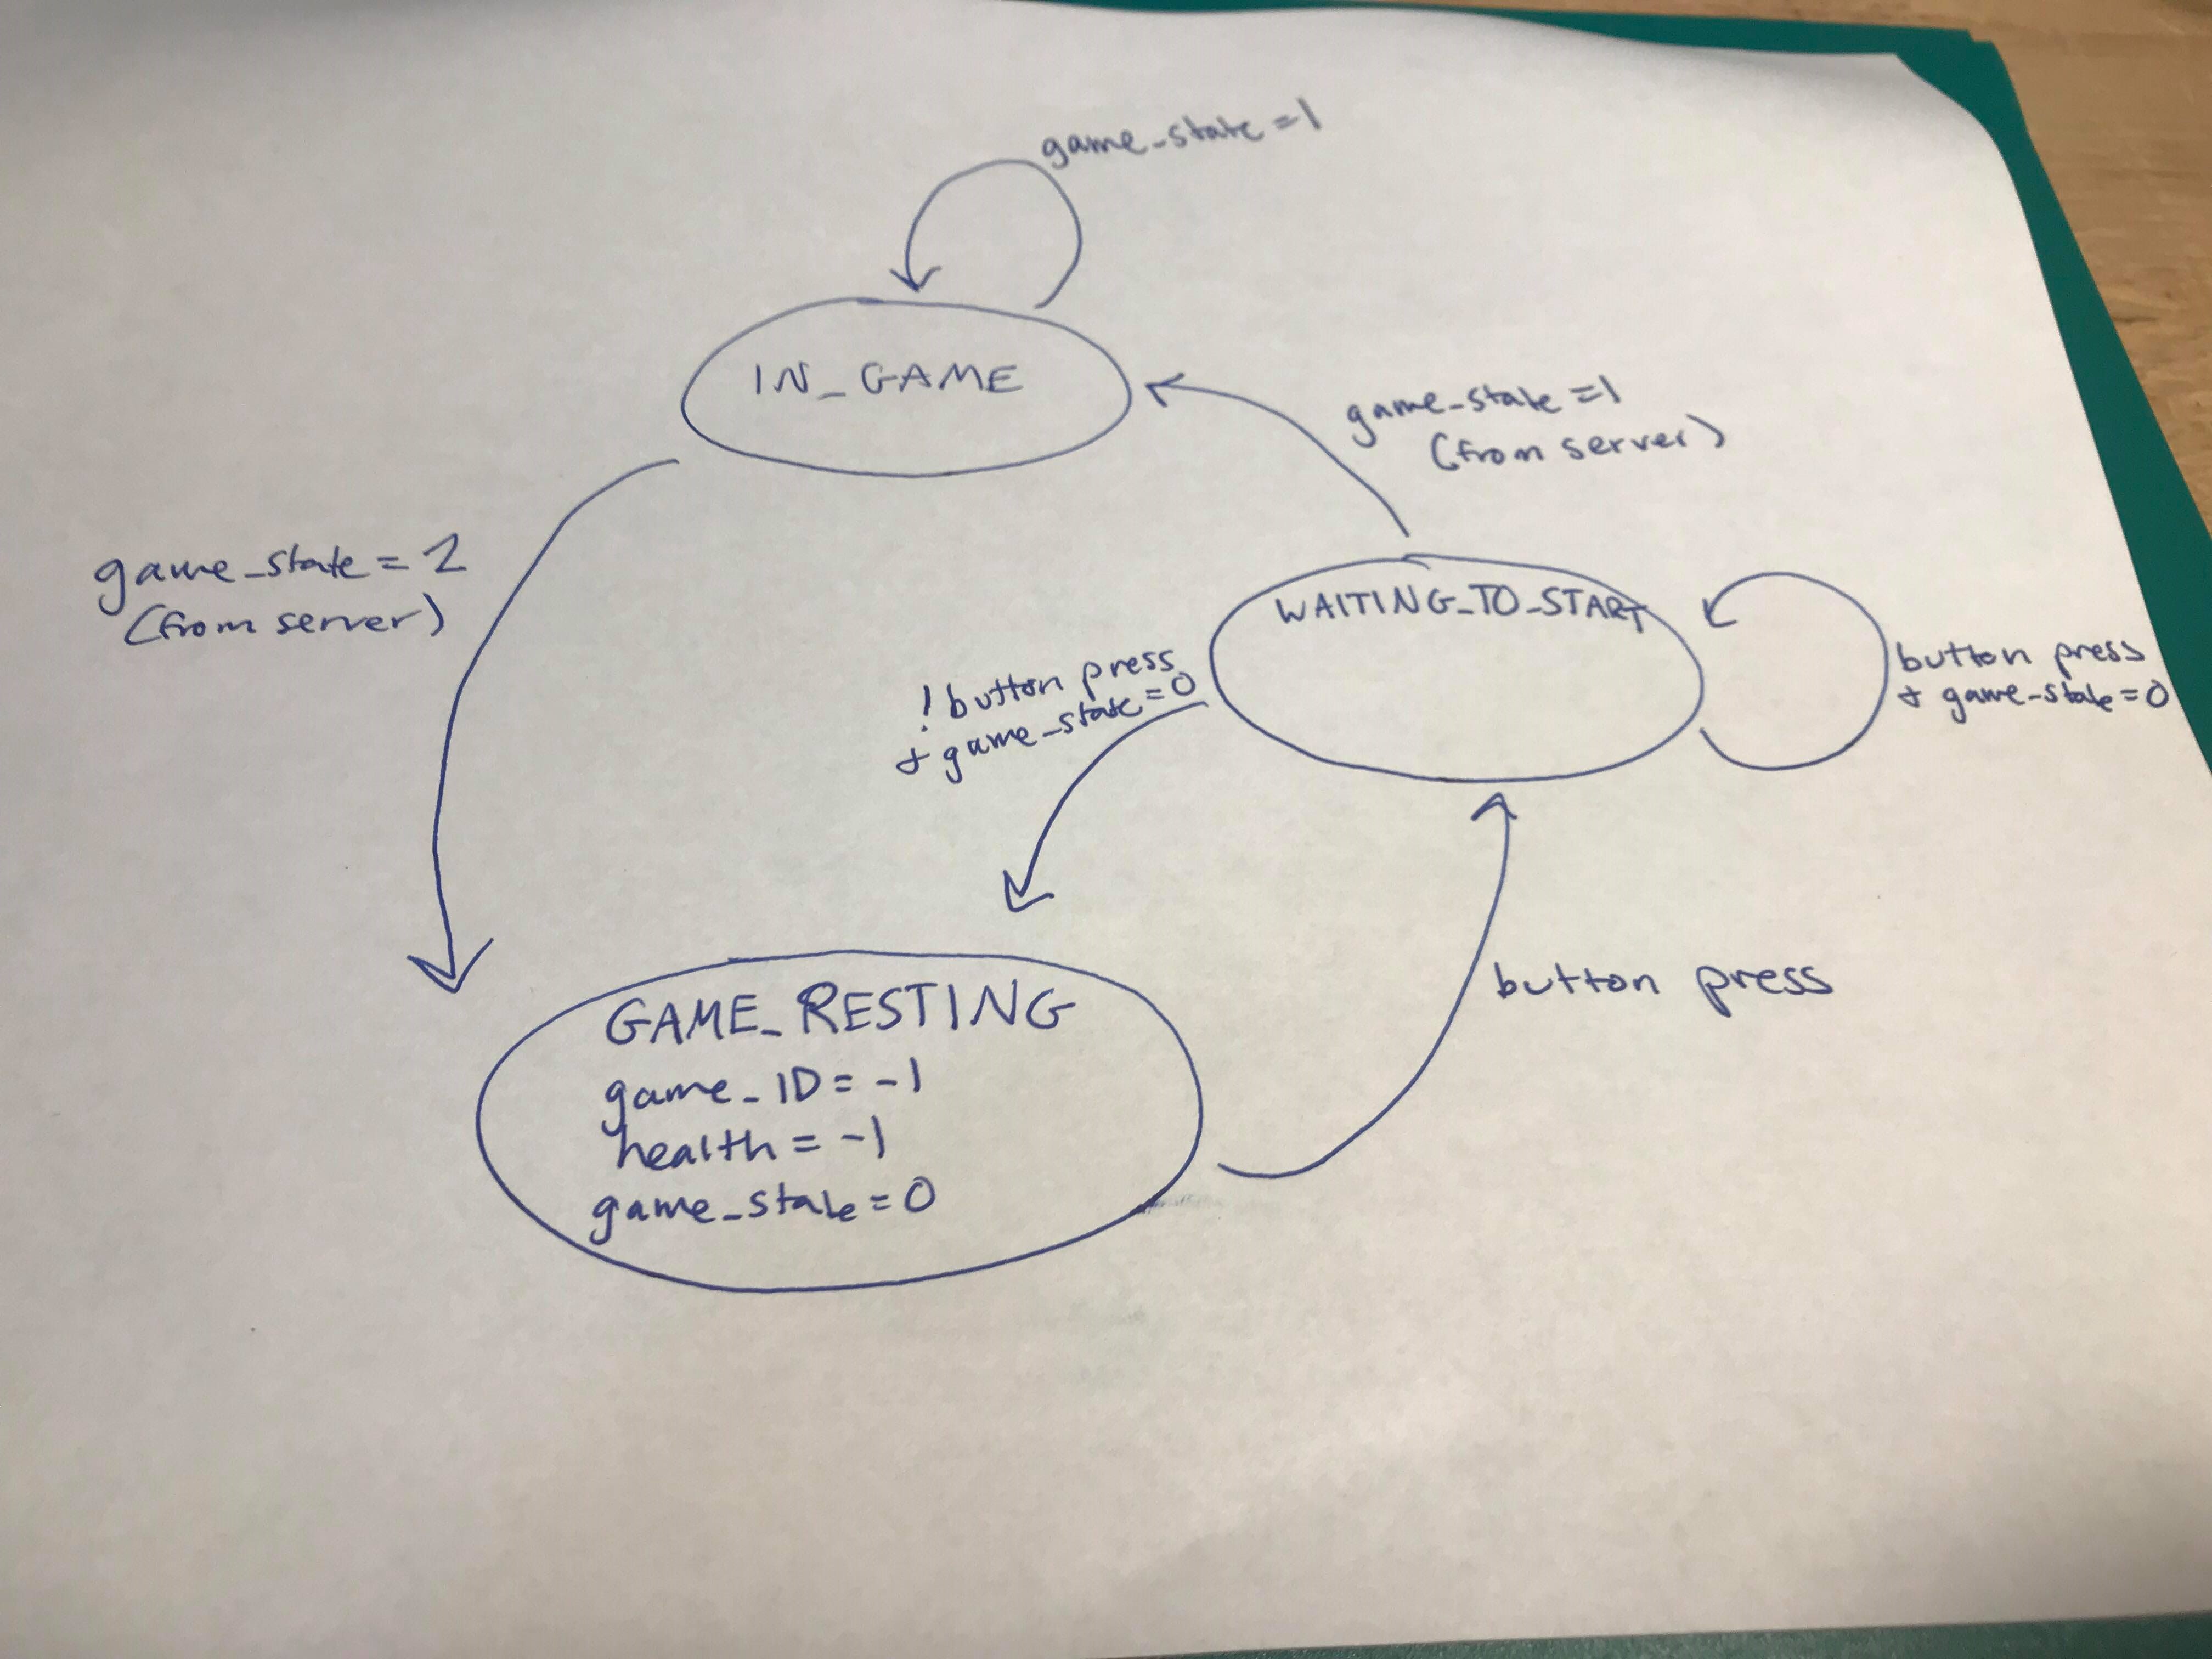 game_state=1
IN_GAME
game_state=1
(from server)
game_state=2
(from server)
WAITING_TO_START
button press
+ game_state=0
! button press
+ game_state=0
button press
GAME_RESTING
game_ID=-1
health=-1
game_state=0